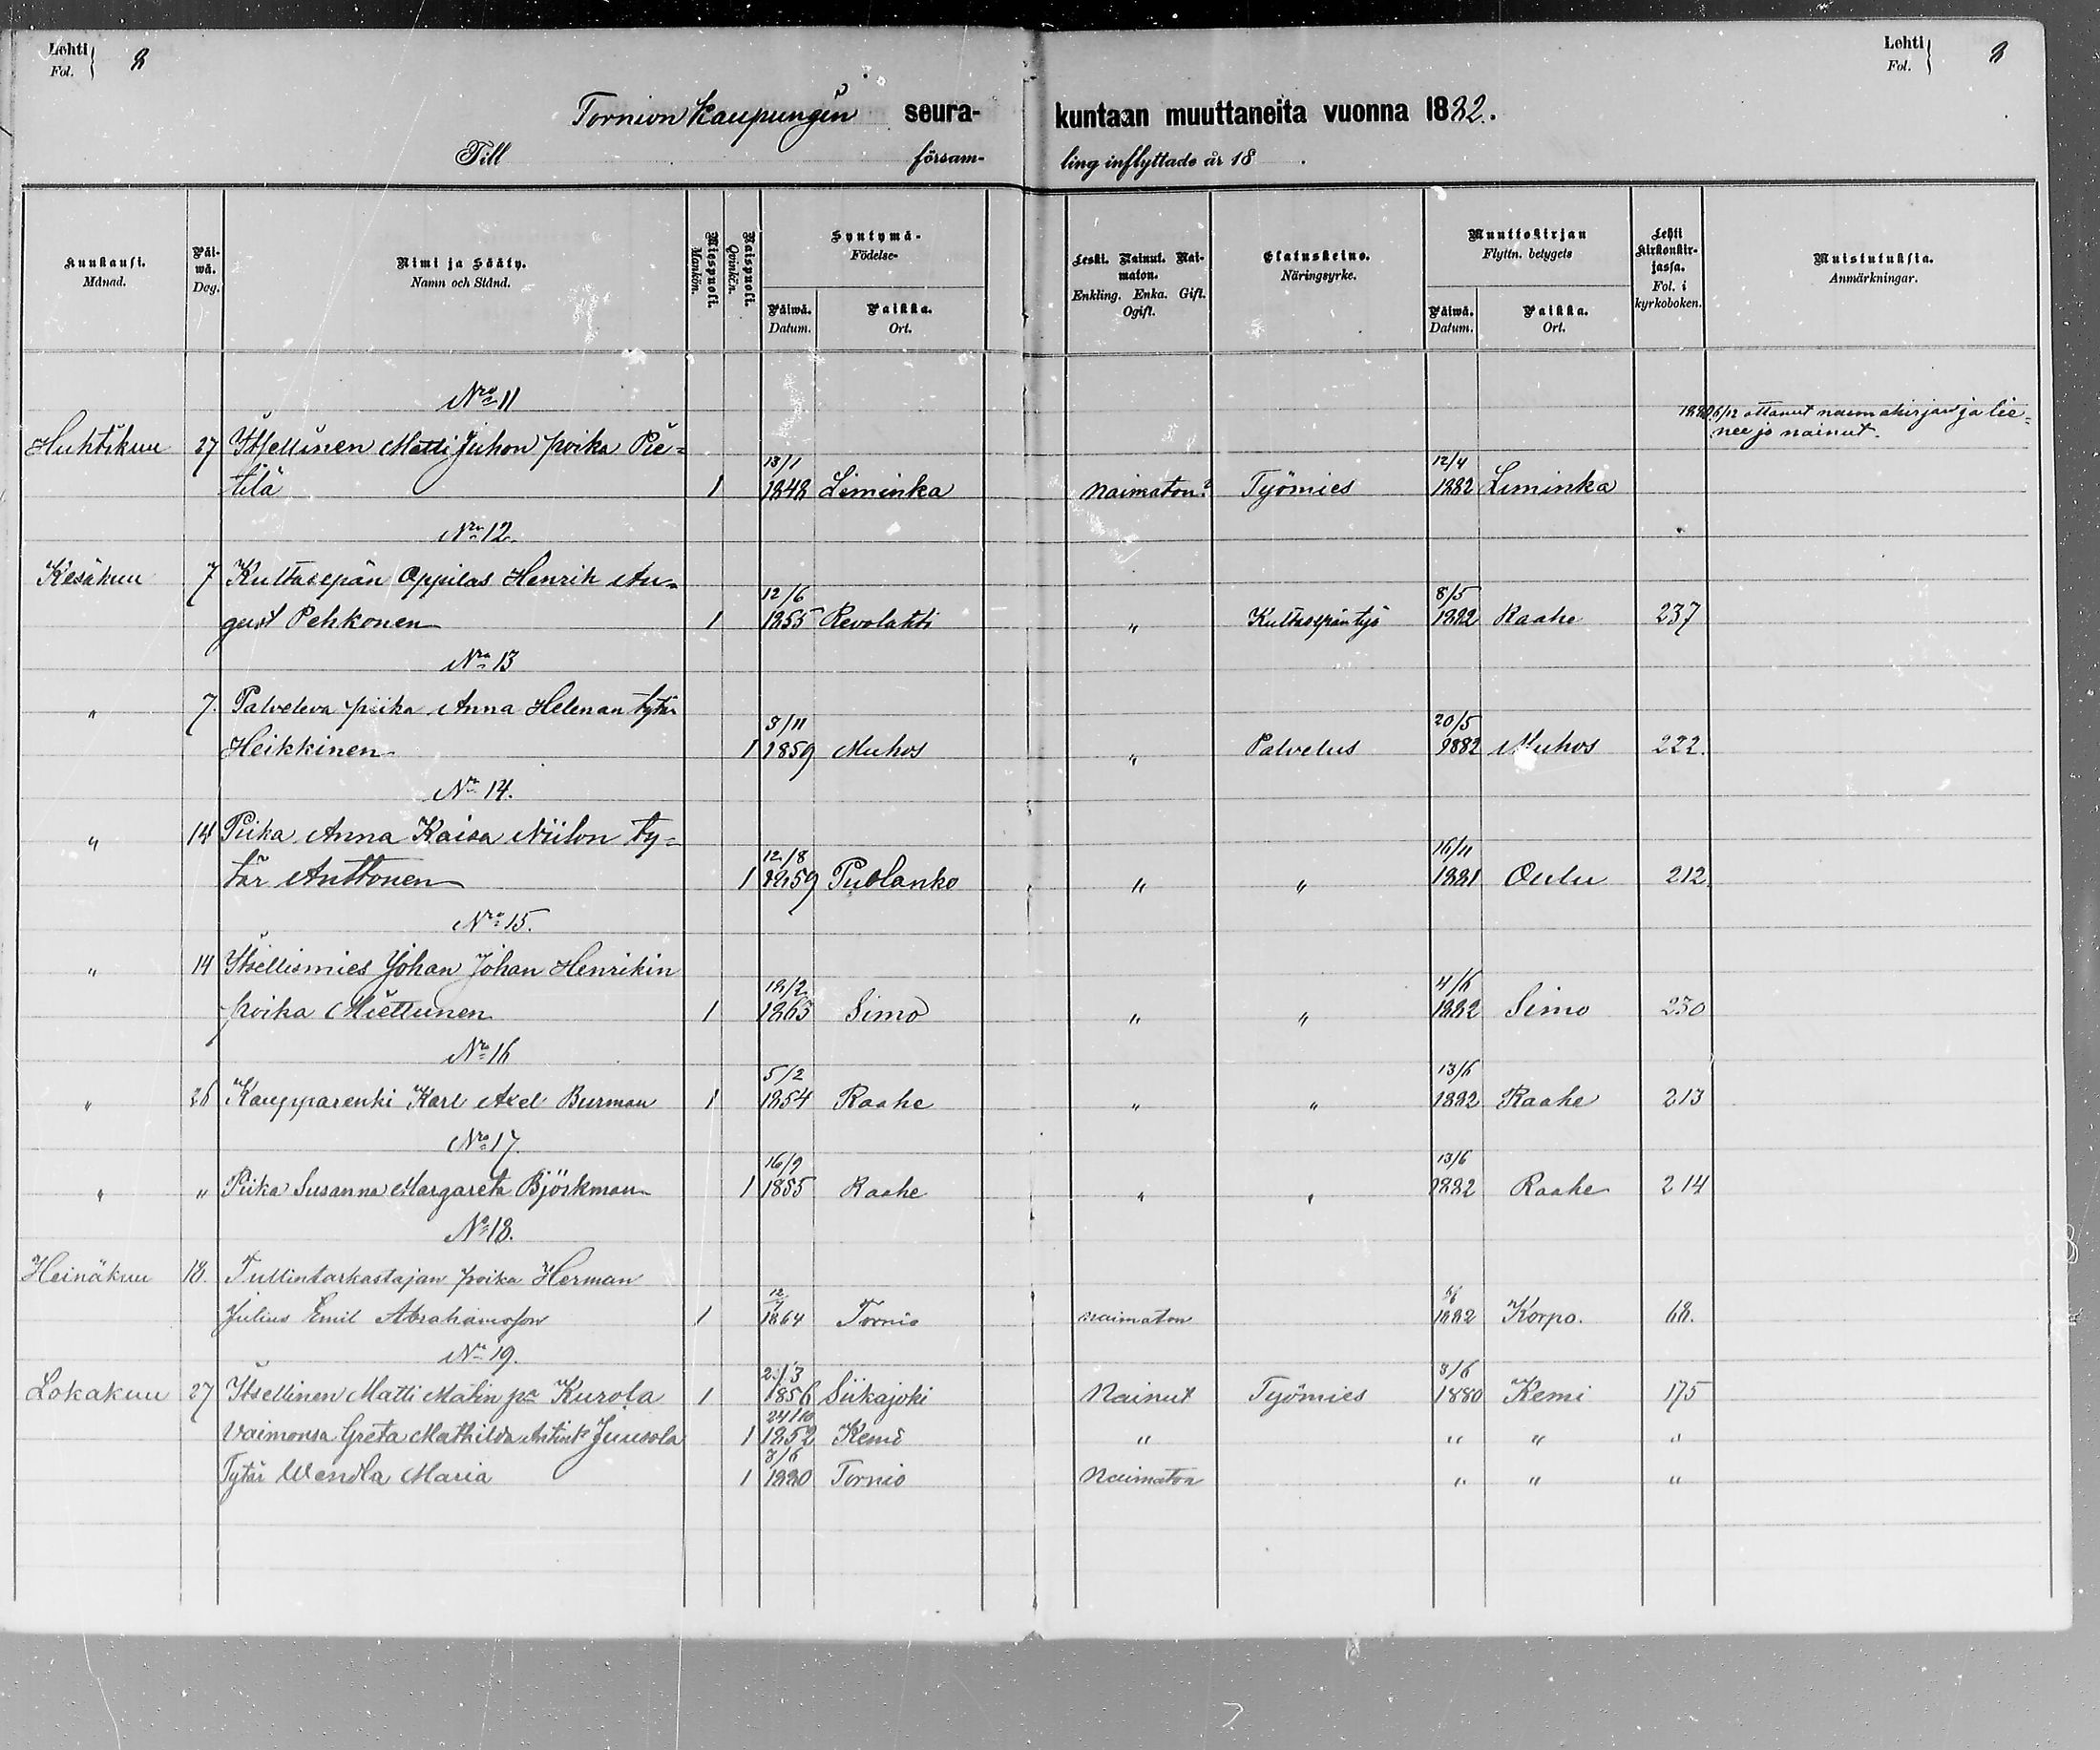 Lehti Fol. 8
Lehti Fol. 8
Tornion Kaupungin seura- kuntaan muuttaneita vuonna 1882.
Till försam- ling inflyttade år 18 .
Kuukausi. Månad.
Päiwä. Dag.
Nimi ja Sääty. Namn och Stånd.
Miespuoli. Mankön.
Naispuoli. Qvinkön.
Syntymä- Födelse-
Päiwä. Datum.
Paikka. Ort.
Leski. Nainut. Naimaton. Enkling. Enka. Gift. Ogift.
Elatuskeino. Näringsyrke.
Muuttokirjan Flyttn. betygets
Päiwä. Datum.
Paikka. Ort.
Lehti kirkonkirjassa. Fol. i kyrkoboken.
Muistutuksia. Anmärkningar.
Nro 11
6/12 ottanut naimakirjan ja lie-
nee jo nainut.
Huhtikuu 27 Itsellinen Matti Juhon poika Pie- 13/1 12/4
tilä 1 1848 Liminka Naimaton? Työmies 1882 Liminka
Nro 12.
Kesäkuu 7 Kultasepän Oppilas Henrik Au- 12/6 8/5
gust Pehkonen 1 1855 Revolahti " Kultasepäntyö 1882 Raahe 237
Nro 13
" 7. Palveleva piika Anna Helenan tytär 8/11 20/5
Heikkinen 1 1859 Muhos " Palvelus 1882 Muhos 222.
No 14.
" 14 Piika Anna Kaisa Niilon ty- 12/8 16/11
tär Anttonen 1 1859 Puolanko " " 1881 Oulu 212.
Nro 15.
" 14 Itsellismies Johan Johan Henrikin 12/2 4/6
poika Miettunen 1 1865 Simo " " 1882 Simo 230
Nro 16
" 26 Kaupparenki Karl Axel Burman 5/2 13/6
1 1854 Raahe " " 1882 Raahe 213
Nro 17.
" " Piika Susanna Margareta Björkman 16/9 13/6
1 1855 Raahe " " 1882 Raahe 214
No 18.
Heinäkuu 18. Tullintarkastajan poika Herman
Julius Emil Abrahamsson 1 1864 Tornio naimaton 1882 Korpo. 68.
No 19.
Lokakuu 27 Itsellinen Matti Matin pa Kurola 1 1856 Siikajoki Nainut Työmies 8/6 1880 Kemi 175
Vaimonsa Greta Mathilda Antint Juusola 1 24/10 1852 Kemi " " " "
Tytär Wendla Maria 1 1880 Tornio Naimaton " " "